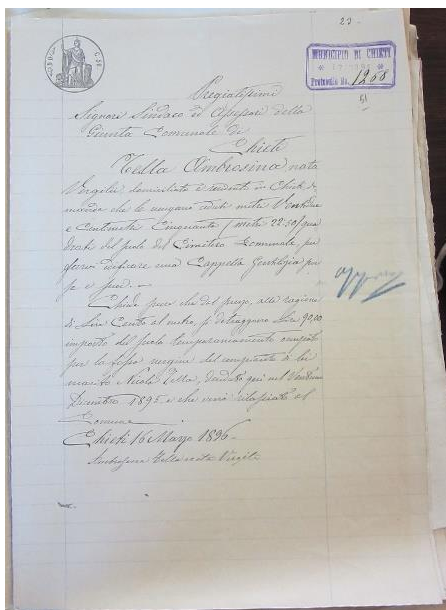 23.
MUNICIPIO DI CHIETI
Protocollo No. 1208
Pregiatissimi
Signori Sindaco ed Assessori della
Giunta Comunale di
Chieti
Tella Ambrosina nata
Vergilii domiciliata e residente in Chieti do
manda che le vengano ceduti metri Ventidue
e Centimetri Cinquanta (metri 22.50) qua
drati del suolo del Cimitero Comunale, per
farvi edificare una Cappella Gentilizia per
se e suoi.
Chiede pure che dal prezzo, alla ragione
di Lire Cento al metro, si detraggano Lire 90,00
importo del suolo temporaneamente occupato
per la fossa
marito Nicola Tella, Ventuno
Decembre 1895 e che verrà rilasciato al
Comune.
Chieti 16 Marzo 1896.
Ambrosina Tella nata Virgilii